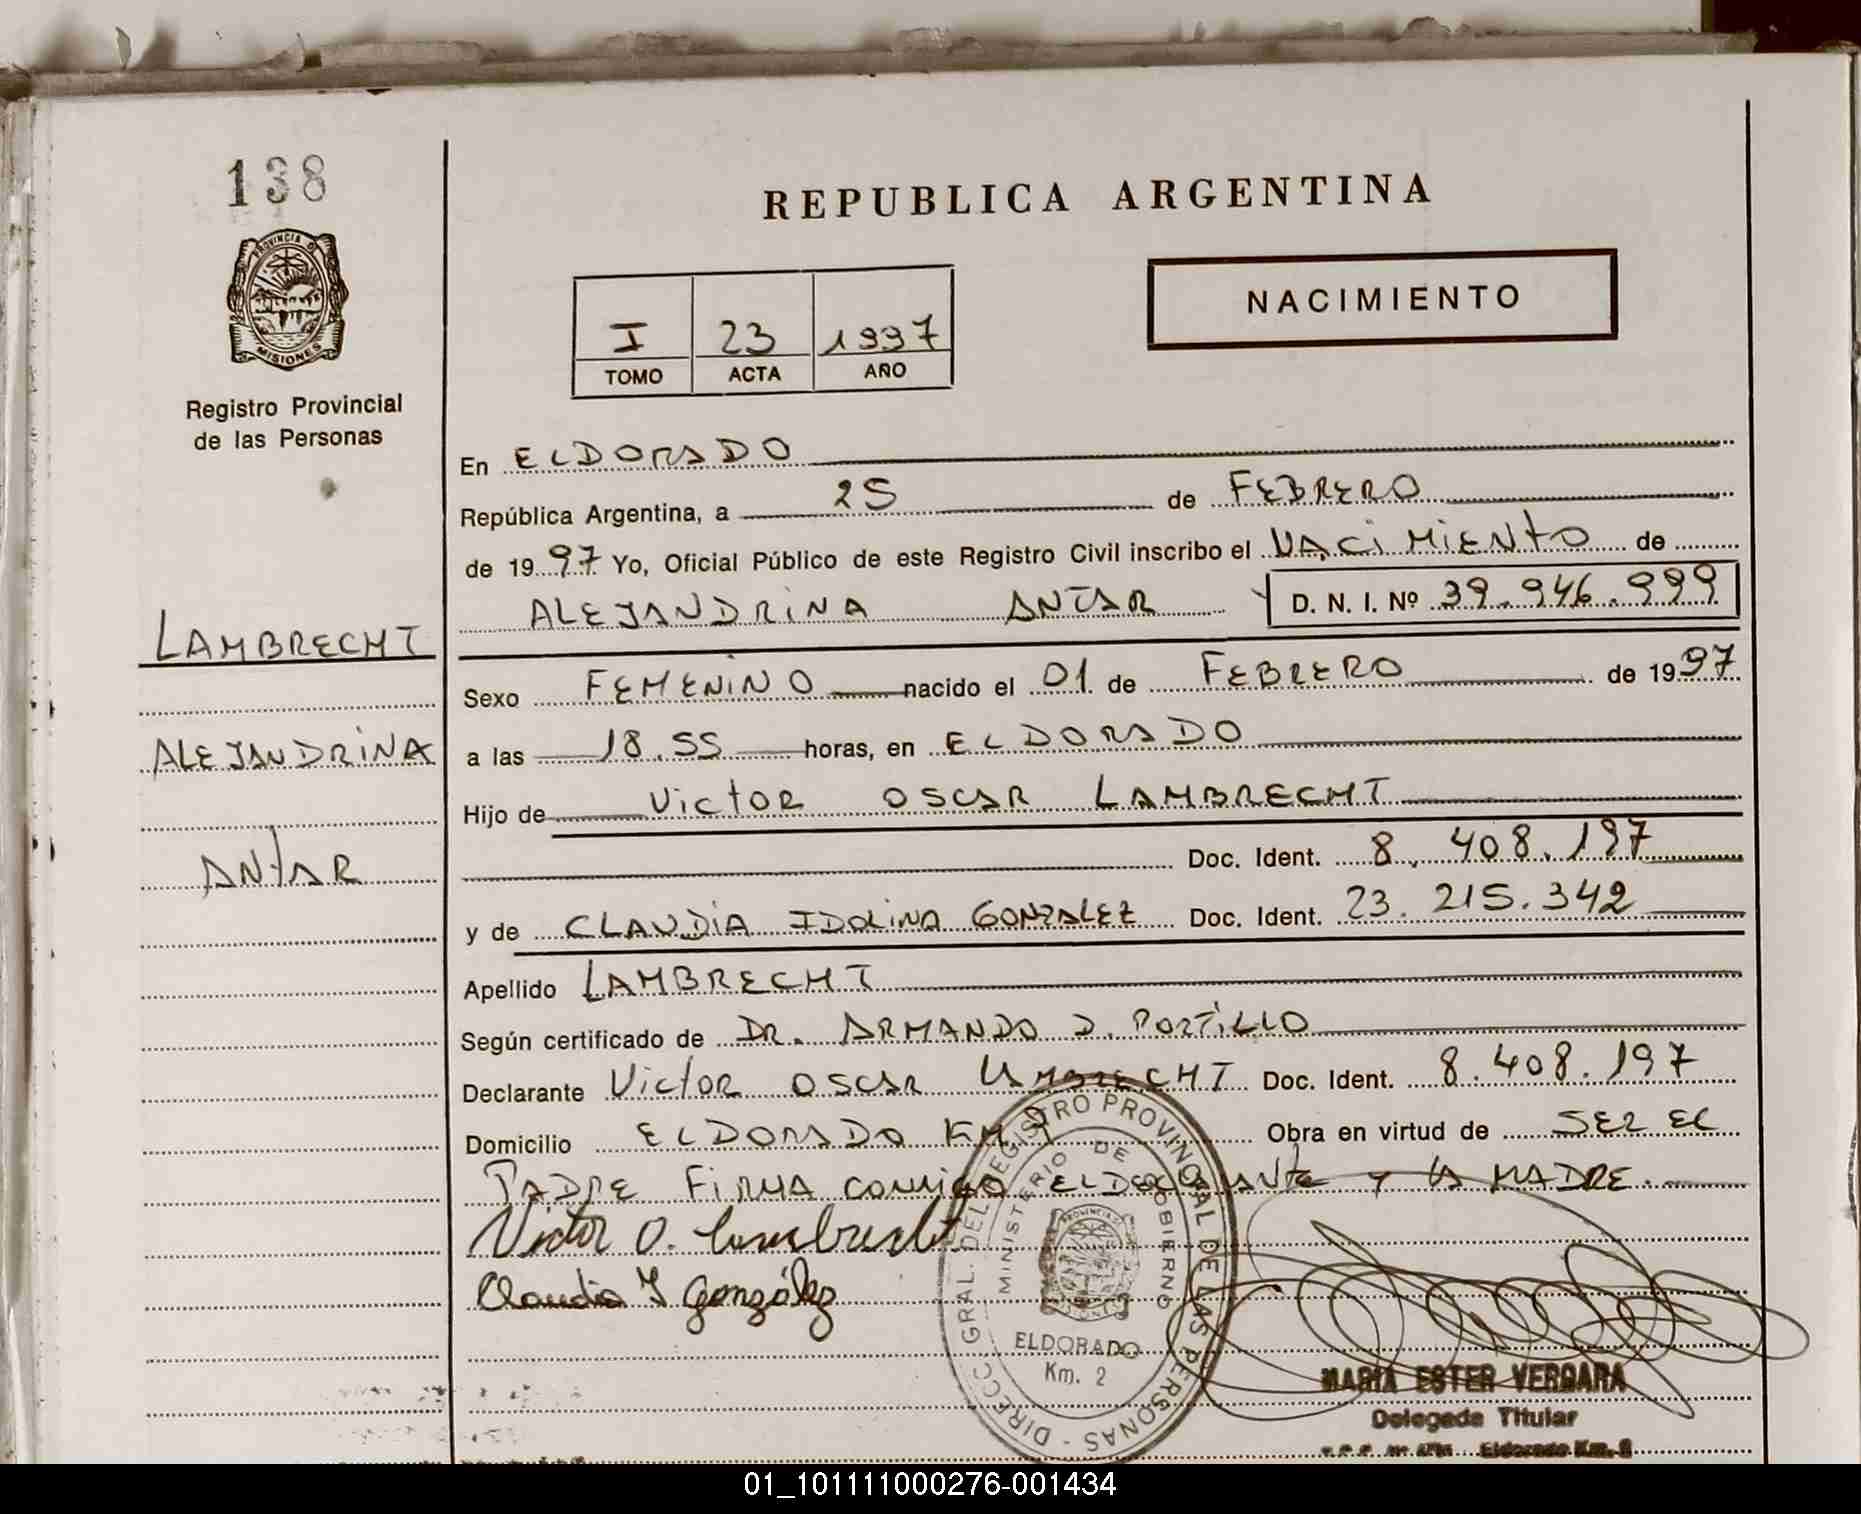 138
PROVINCIA D
MISIONES
Registro Provincial
de las Personas
LAMBRECHT
ALEJANDRINA
ANTAR
REPUBLICA ARGENTINA
NACIMIENTO
I 23 1997
TOMO ACTA AÑO
En ELDORADO
República Argentina, a 25 de FEBRERO
de 1997 Yo, Oficial Público de este Registro Civil inscribo el NACIMIENTO de
ALEJANDRINA ANTAR D. N. I. Nº 39.946.999
Sexo FEMENINO nacido el 01 de FEBRERO de 1997
a las 18.55 horas, en ELDORADO
Hijo de VICTOR OSCAR LAMBRECHT
Doc. Ident. 8.408.197
y de CLAUDIA IDOLINA GONZALEZ Doc. Ident. 23.215.342
Apellido LAMBRECHT
Según certificado de DR. ARMANDO D. PORTILLO
Declarante VICTOR OSCAR LAMBRECHT Doc. Ident. 8.408.197
Domicilio ELDORADO KM 9 Obra en virtud de SER EL
PADRE FIRMA CONMIGO EL DECLARANTE Y LA MADRE.
Victor O. Lambrecht
Claudia I González
DIRECC GRAL. DEL REGISTRO PROVINCIAL DE LAS PERSONAS -
MINISTERIO DE GOBIERNO
ELDORADO
Km. 2
MARIA ESTER VERGARA
Delegada Titular
Eldorado Km. 2
01_101111000276-001434